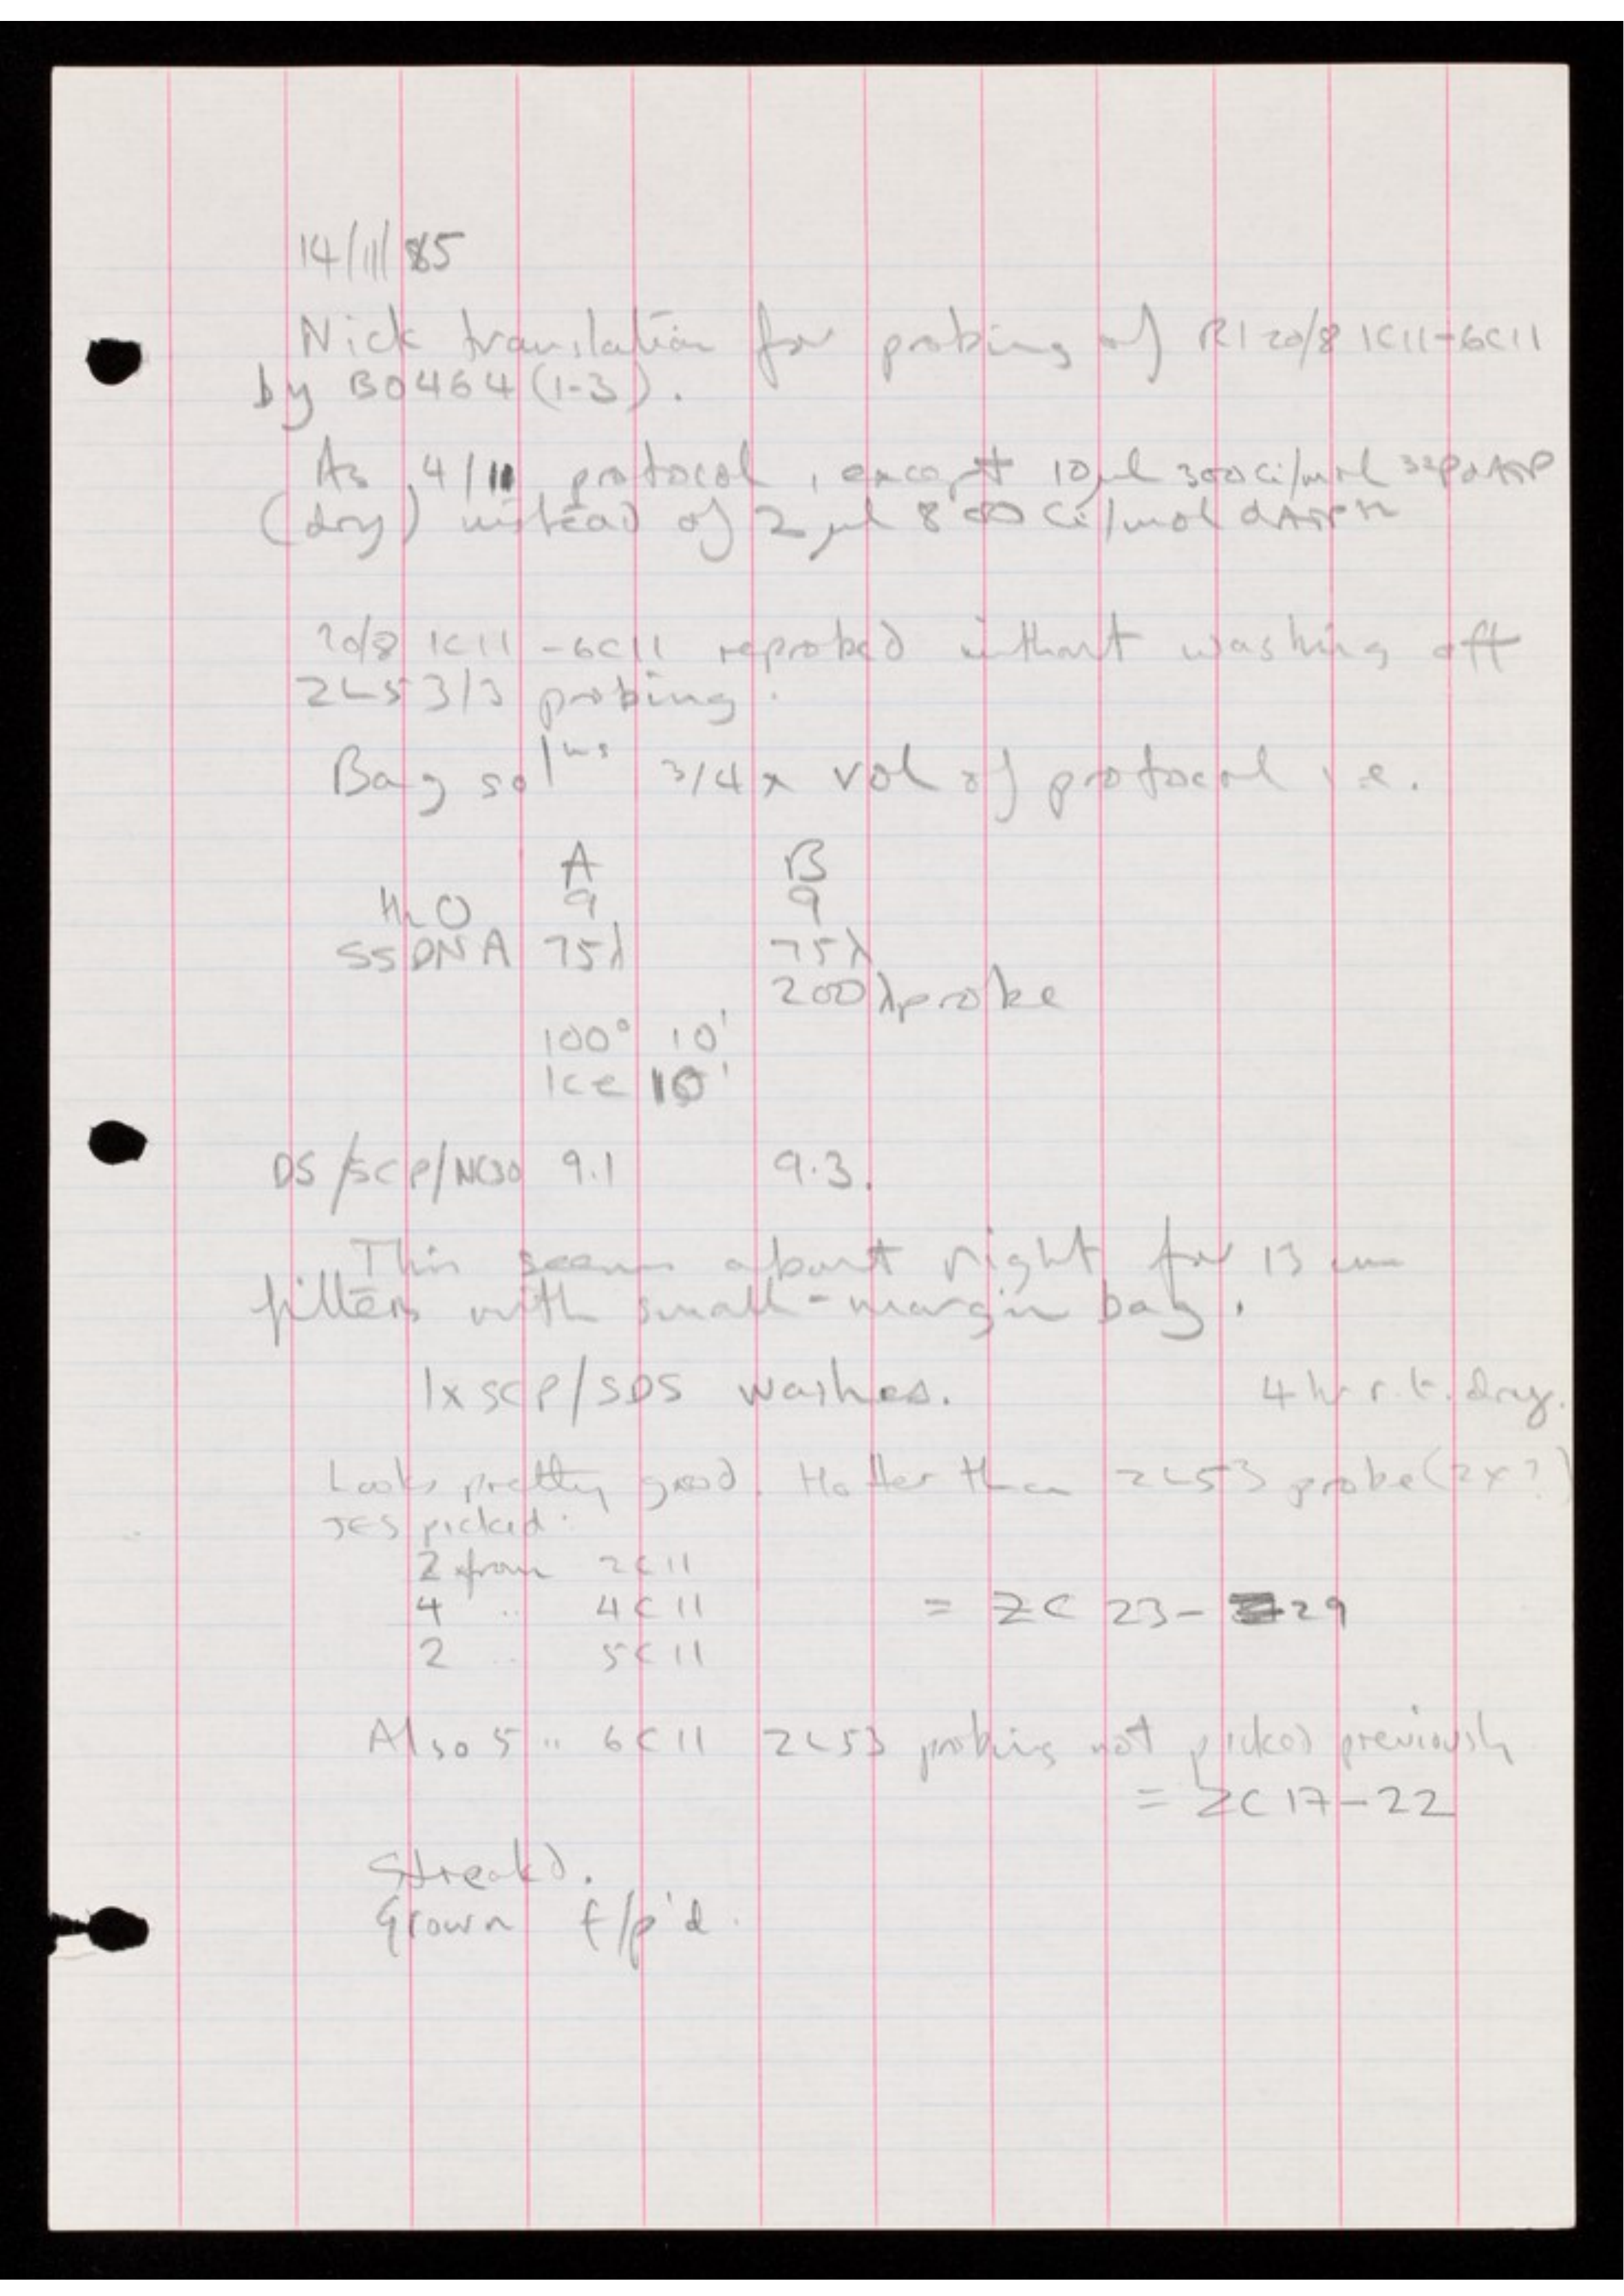 14/11/85
Nick translation for probing of RI 20/8 1C11-6C11
by B0464 (1-3).
As 4/11 protocol, except 10µl 300Ci/mol 32P dATP
(dry) instead of 2µl 800 Ci/mol
20/8 1C11 - 6C11 reprobed without washing off
2L53/3 probing.
Bag solns 3/4 x vol of protocol i.e.
A B
H2O 9 9
SSDNA 75λ 75λ
200λ probe
100° 10'
Ice 10'
DS/SCP/NC30 9.1 9.3.
This seems about right for 13 cm
filters with small-margin bag.
1x SCP/SDS washes. 4 hr r.t. dry.
Looks pretty good. Hotter than 2L53 probe (2x?)
JES picked.
2 from 2C11
4 .. 4C11 = ZC 23- 29
2 .. 5C11
Also 5 .. 6C11 2L53 probing not picked previously
= ZC 17-22
Streakd.
Grown f/p'd.